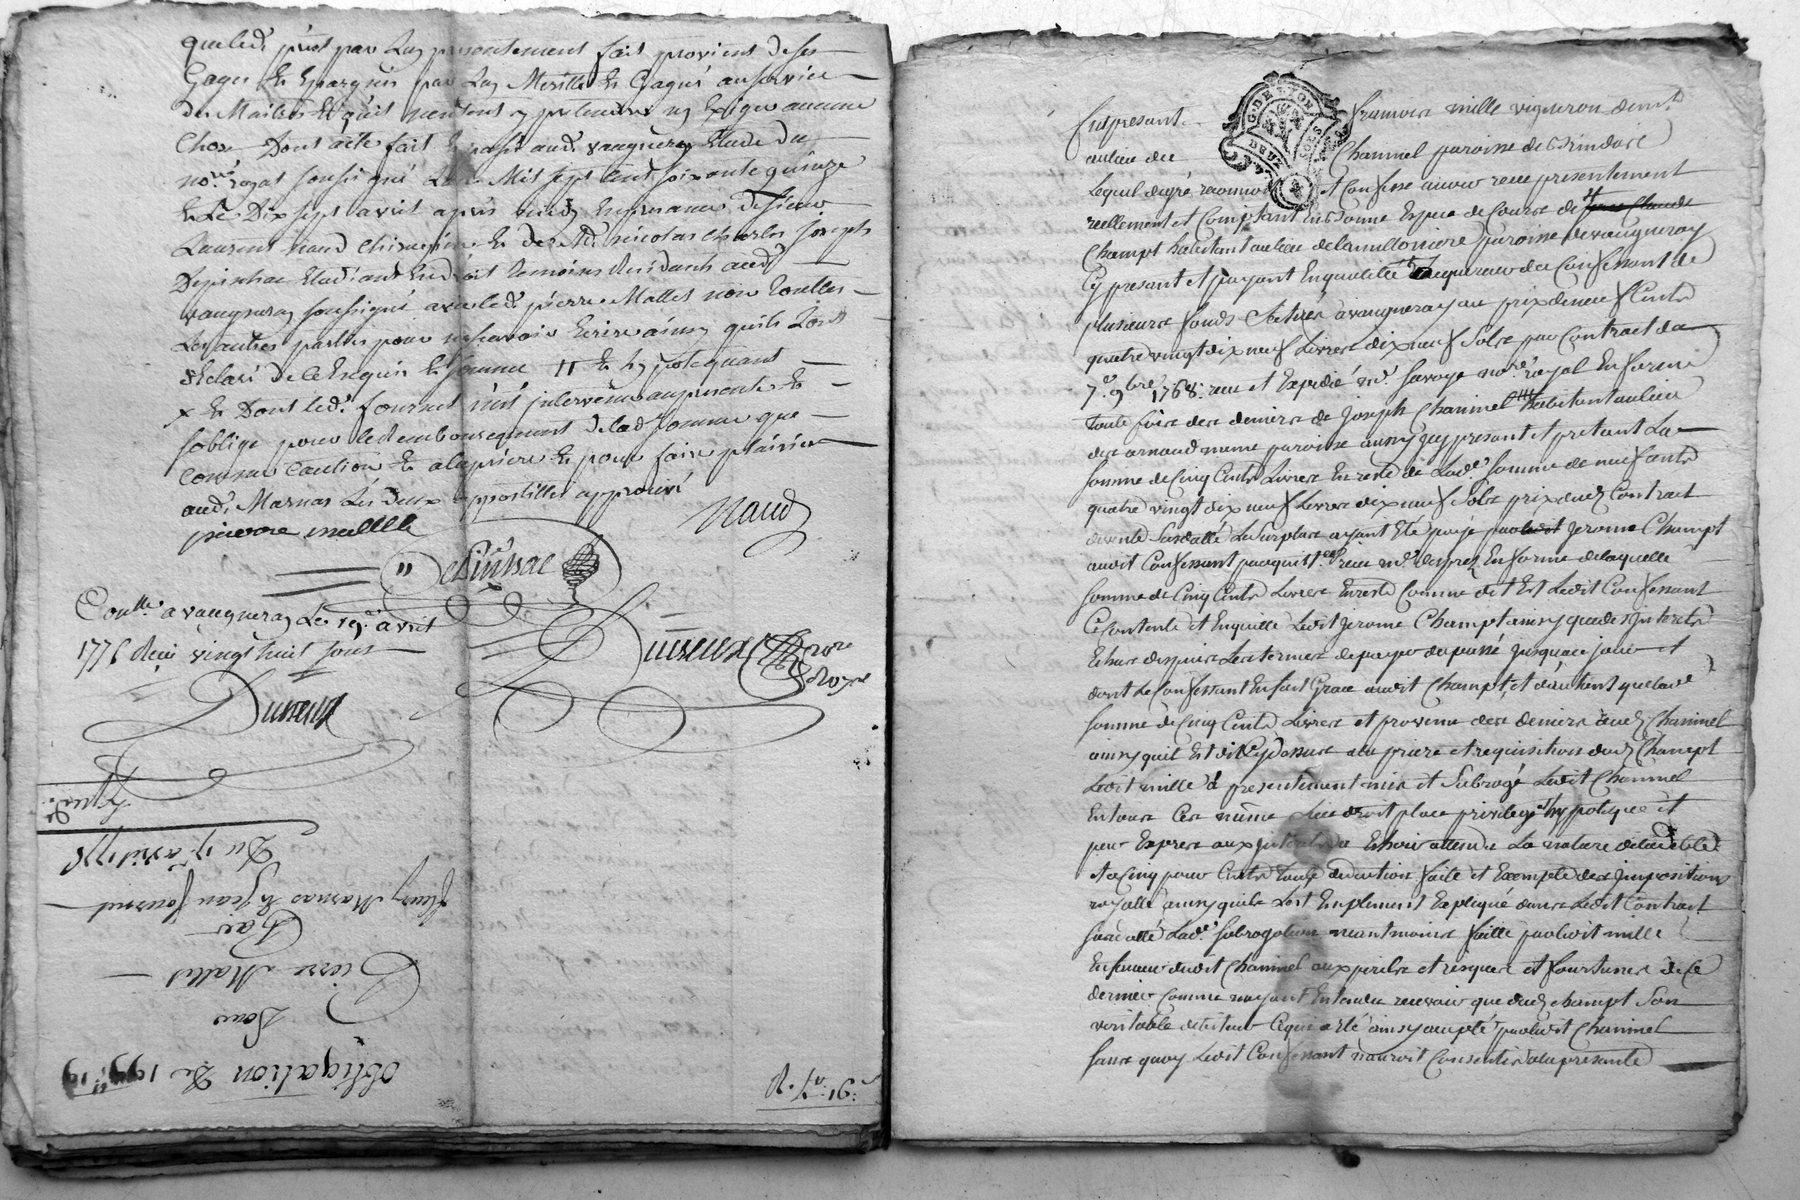 queled. prest par luy presentement fait provient de ses
Gages et Epargnes par luy Merittés et Gagnés au service
des Maitres et qu'il n'entend y pretendre ny Exiger aucune
Chose Dont acte fait et passé aud. vaugneray Etude du
no.re royal soussigné L'an Mil sept cent soixante quinze
et Le Dix sept avril après midy En presence de sieur
Laurent Naud chirurgien et de s.r nicolas charles joseph
Depinhac Etudiant En droit temoins Residants aud.
vaugneray soussignés avec led. pierre Mallet non les
Les autres parties pour ne savoir Ecrire ainsy qu'ils L'ont
declaré de ce Enquis et sommés et hypotequant
x Et Dont led. fournet icy intervenu
s'oblige pour le Remboursement de lad. somme que
comme Caution et a la priere et pour faire plaisir
aud. Marnas Les deux appostilles approuvé
Naud
Depinhac
Dusseux
Con.llé a vaugneray Le 19.e avril
1775 Reçu vingt huit sous
Dusseux
Exped.
Du 17 avril 1775
Marnas et Jean fournet
Par
Pierre Mallet
Pour
obligation De 199
R. 7. 16.
G. DE LYON
DEUX SOLS
Fut present francois mille vigneron dem.t
au lieu de Chaninel paroisse de Brindas
Lequel de gré reconnoit et Confesse avoir receu presentement
reellement et Comptant En Bonne Espece de Cours de jean Claude
Champt habitant au lieu de la milloniere paroisse de vaugneray
Cy present et payant En qualité d'acquereur du Confessant de
plusieurs fonds scitués a vaugneray au prix de neuf Cents
quatre vingt dix neuf Livres dix neuf Sols par Contract du
7.e 9bre 1768. receu et Expedié m.e Savoye no.re royal En forme
toute fois des deniers de Joseph Chaninel habitant au lieu
des arnaud meme paroisse aussy icy present et pretant La
somme de Cinq Cents Livres En reste de Lad.e somme de neuf cents
quatre vingt dix neuf Livres dix neuf Sols prix dud. Contract
de vente Susdatté Le Surplus ayant Eté payé par ledit jerome Champt
audit Confessant par quit.ce receu m.e En forme de laquelle
somme de Cinq Cents Livres En reste Comme dit Est Ledit Confessant
Ce Contente et En quitte Ledit jerome Champt ainsy que des jnterets
Echus depuis Les termes de payer du passé jusqu'au jour
dont Le Confessant En fait Grace audit Champt et d'autant que lad.e
somme de Cinq Cents Livres et provenue des deniers dud. Chaninel
ainsy qu'il Est dit Cy dessus a la priere et requisition dud. Champt
Ledit mille a presentement mis et Subrogé Ledit Chaninel
En tous Ces noms Lieu droit place privilege et hypoteque et
pour Exprès aux jnterets a Echoir attendu La nature de lad. dette
au Cinq pour Cents Toute deduction faite et Exempte des jmpositions
royalle ainsy qu'il L'est Emplement Expliqué dans Ledit Contract
Susdatté Lad.e subrogation neantmoins faitte par ledit mille
En faveur dudit Chaninel aux perils et risques et fortunes de Ce
dernier Comme n'ayant Entendu recevoir que dud. Champt Son
veritable debiteur Ce qui a Eté ainsy accepté par ledit Chaninel
sans quoy Ledit Confessant n'auroit Consenti a la presente